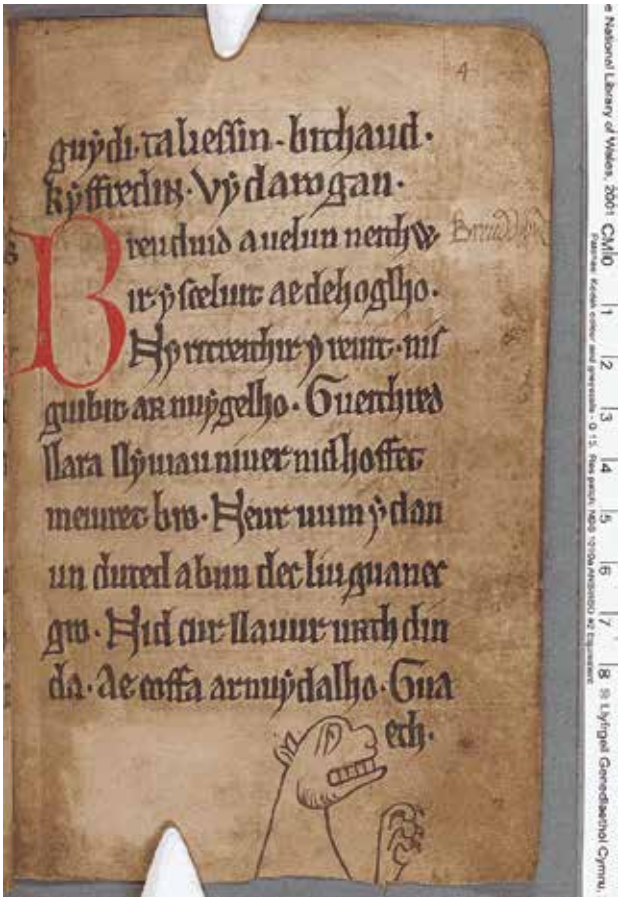 4
guẏdi. taliessin. bithaud.
kẏffredin. Vẏ darogan.
Breuduid a uelun neithw
ir ẏ sceluit ae dehoglho.
Nẏ ritreithir ẏ reuit. nis
guibit ar nuẏ gelho. Gueithred
llara llẏuiau niuer nid hoffet
meuret bro. Neur uum ẏ dan
un duted a bun dec liu guanec
gro. Nid cur llauur urth din
da. Ae coffa ar nuẏ dalho. Gua
ech.
e National Library of Wales, 2001
CM 0 1 2 3 4 5 6 7 8
Kodak colour and greyscale - Q 13.
© Llyfrgell Genedlaethol Cymru,